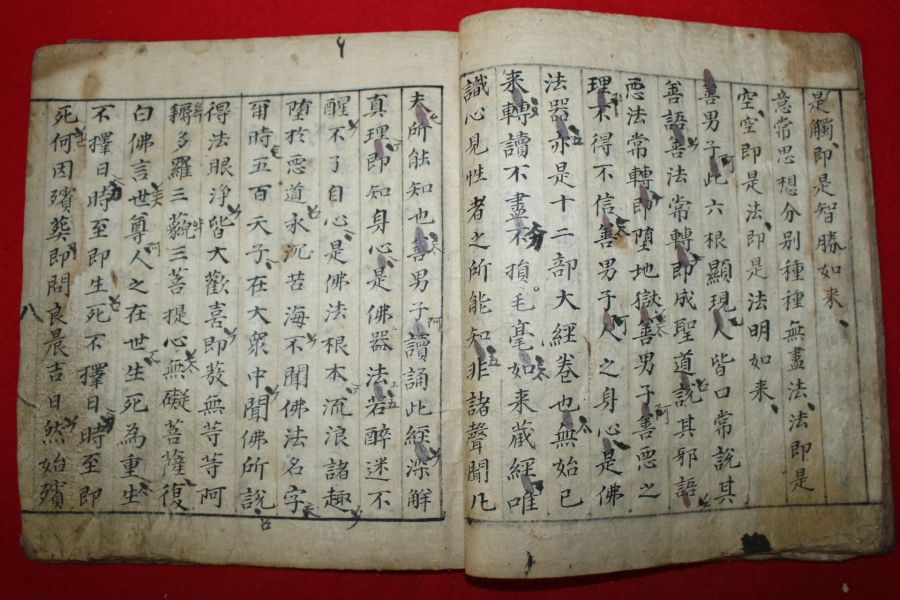 是觸即是智勝如來
意常思想分別種種無盡法法即是
空空即是法即是法明如來
善男子此六根顯現人皆口常說其
善語善法常轉即成聖道說其邪語
悪法常轉即墮地獄善男子善悪之
理不得不信善男子人之身心是佛
法器亦是十二部大經卷也無始已
来轉讀不盡不損毛毫如来藏經唯
識心見性者之所能知非諸聲聞凡
夫所能知也善男子讀誦此經深解
真理即知身心是佛器法若醉迷不
醒不了自心是佛法根本流浪諸趣
墮於悪道永沉苦海不聞佛法名字
爾時五百天子在大衆中聞佛所說
得法眼淨皆大歡喜即發無等等阿
耨多羅三藐三菩提心無礙菩薩復
白佛言世尊人之在世生死為重生
不擇日時至即生死不擇日時至即
死何因殯葬即問良晨吉日然始殯
八